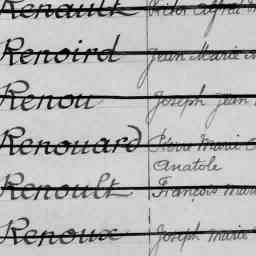 Renault Victor Alfred
Renoird Jean Marie
Renou Joseph Jean
Renouard Pierre Marie
Anatole
Renoult François Marie
Renoux Joseph Marie